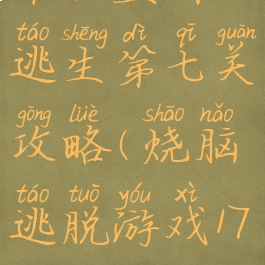 táo shēng dì qī guān
逃生第七关
gōng lüè shāo nǎo
攻略(烧脑
táo tuō yóu xì
逃脱游戏17